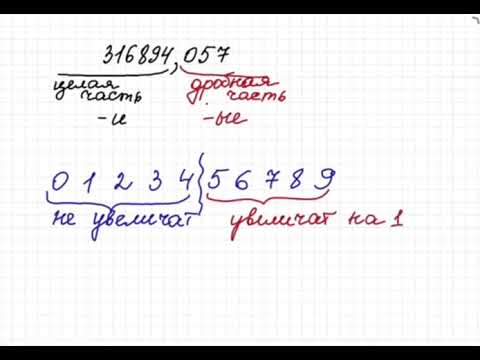 316894,057
целая дробная
часть часть
-и -ые
0 1 2 3 4 5 6 7 8 9
не увеличат увеличат на 1